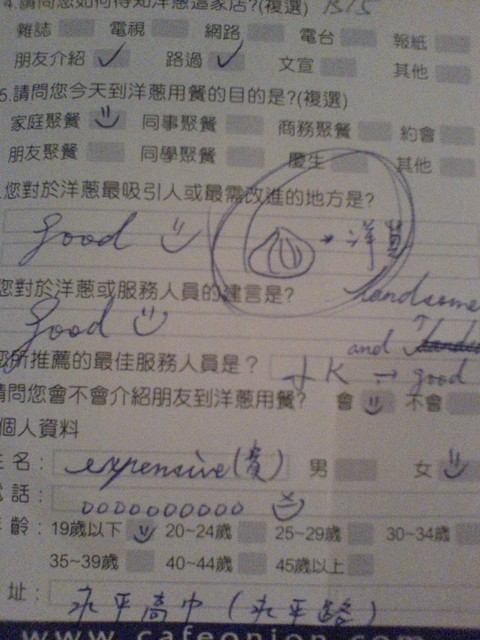 4.請問您如何得知洋蔥這家店?(複選) B15
雜誌 電視 網路 電台 報紙
朋友介紹 ✓ 路過 ✓ 文宣 其他
5.請問您今天到洋蔥用餐的目的是?(複選)
家庭聚餐 同事聚餐 商務聚餐 約會
朋友聚餐 同學聚餐 慶生 其他
您對於洋蔥最吸引人或最需改進的地方是?
good 洋蔥
您對於洋蔥或服務人員的建言是?
handsome
good
and
您所推薦的最佳服務人員是?
K → good
請問您會不會介紹朋友到洋蔥用餐? 會 不會
個人資料
姓名: expensive(貴) 男 女
電話: 0000000000
年齡: 19歲以下 20~24歲 25~29歲 30~34歲
35~39歲 40~44歲 45歲以上
址: 永平高中(永平路)
www.cafeonion.com